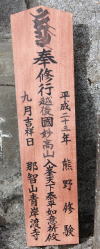 奉修行越後國妙高山入峯天下泰平如意祈攸
平成二十三年
九月吉祥日
熊野修験
那智山青岸渡寺